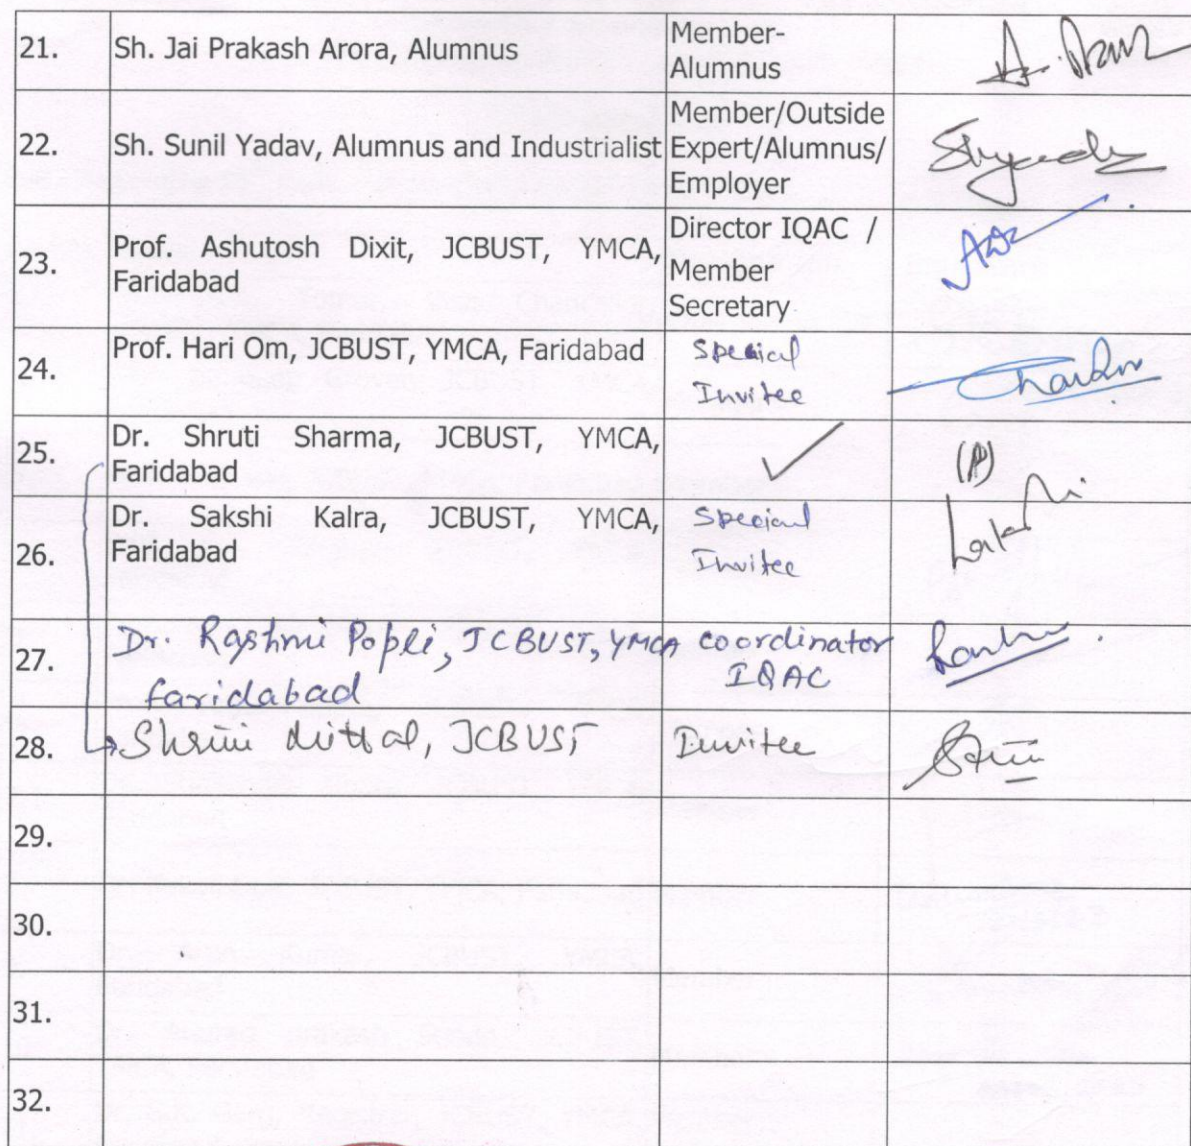 21. Sh. Jai Prakash Arora, Alumnus Member-
Alumnus
22. Sh. Sunil Yadav, Alumnus and Industrialist Member/Outside
Expert/Alumnus/
Employer
23. Prof. Ashutosh Dixit, JCBUST, YMCA,
Faridabad Director IQAC /
Member
Secretary
24. Prof. Hari Om, JCBUST, YMCA, Faridabad Special
Invitee
25. Dr. Shruti Sharma, JCBUST, YMCA,
Faridabad
26. Dr. Sakshi Kalra, JCBUST, YMCA,
Faridabad Special
Invitee
27. Dr. Rashmi Popli, JCBUST, YMCA coordinator
faridabad IQAC
28. Mittal, JCBUST Invitee
29.
30.
31.
32.